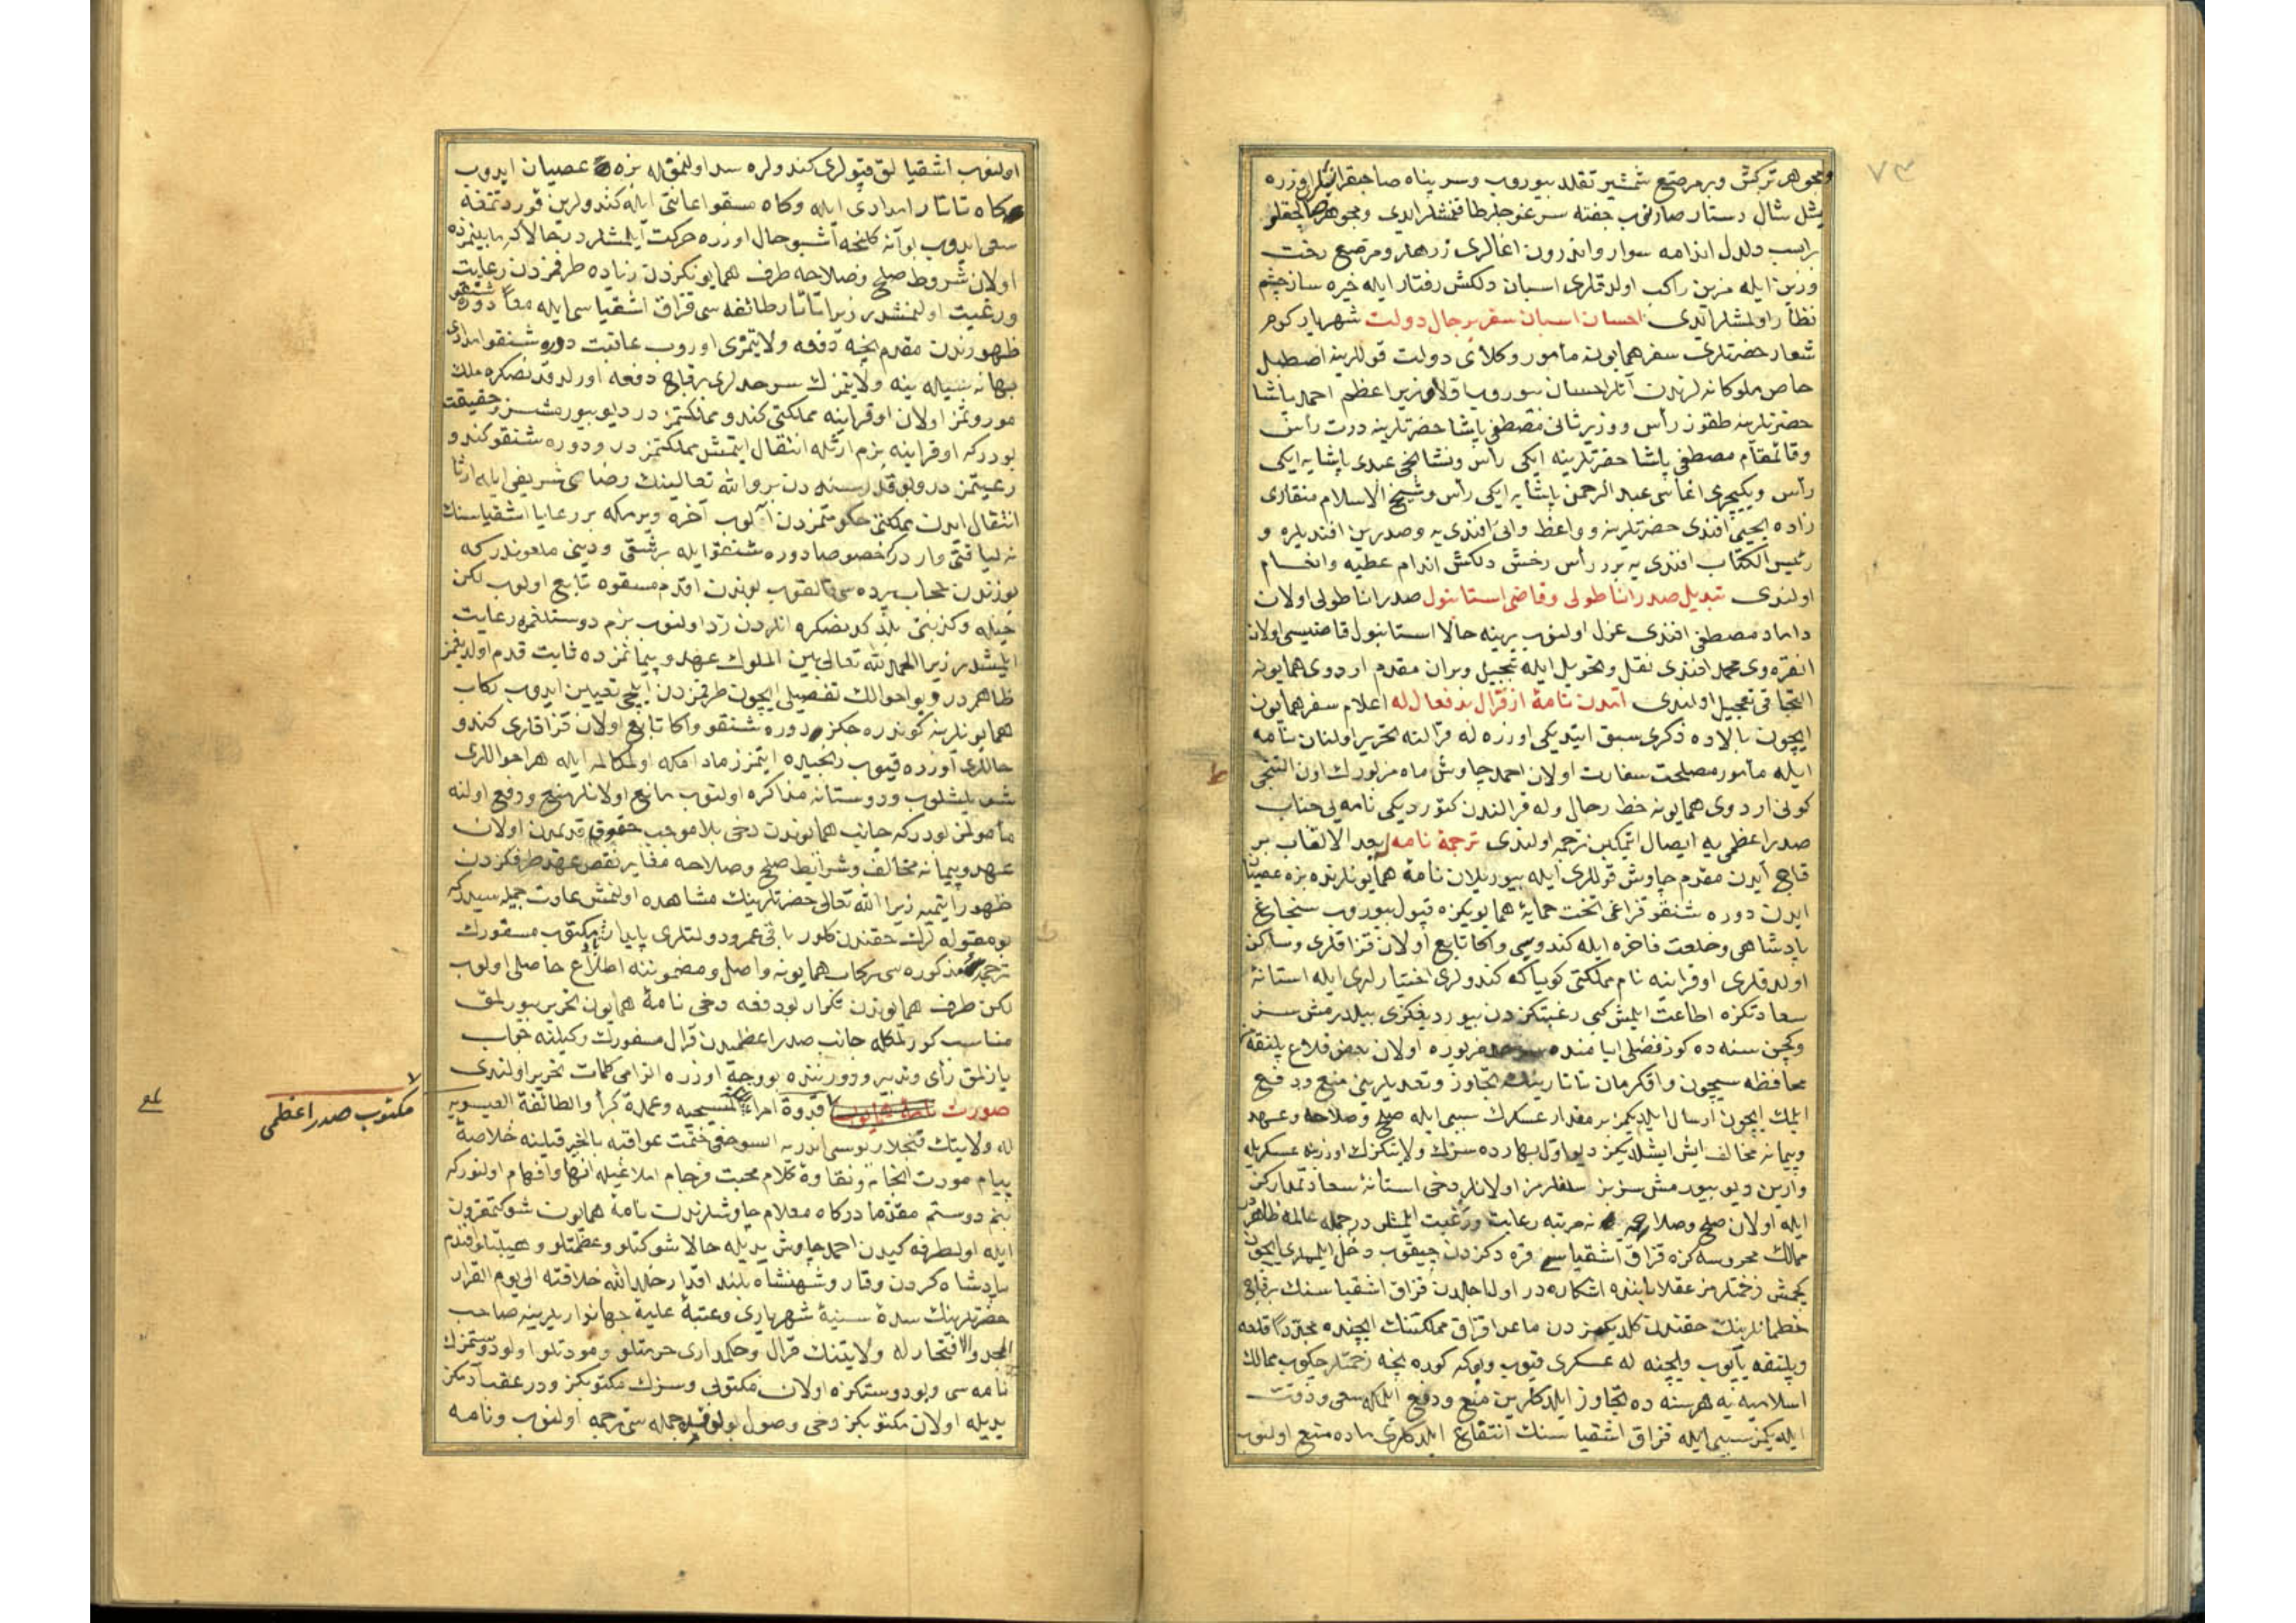 ٧٣
ومجوهر تركش وبر مرصع شمشير تقلد بيوروب وسر پناه صاحبقرانيلری اوزره
يشل شال دستار صارنوب جفته سرغوجلر طاقنمشلر ايدی ومجوهر
براسب دلدل اندامه سوار واندرون اغالری زرهلر ومرصع رخت
وزين ايله مزين راكب اولدقلری اسبان دلكش رفتار ايله خيره ساز چشم
نظار اولمشلر ايدی احسان اسبان سفر بر جال دولت شهريار كوهر
شعار حضرتلری سفر همايونه مأمور وكلای دولت قوللرينه اصطبل
خاص ملوكانه لرندن آتلر احسان بيوروب اولا وزير اعظم احمد پاشا
حضرتلرينه طقوز رأس ووزير ثانی مصطفی پاشا حضرتلرينه درت رأس
وقائمقام مصطفی پاشا حضرتلرينه ايكی رأس ونشانجی عبدی پاشايه ايكی
رأس ويكيچری اغاسی عبد الرحمن پاشايه ايكی رأس وشيخ الاسلام منقاری
زاده يحيی افندی حضرتلرينه وواعظ وانی افندی يه وصدرين افنديلره و
رئيس الكتاب افندی يه برر رأس رخش دلكش اندام عطيه وانعام
اولندی تبديل صدر اناطولی وقاضی استانبول صدر اناطولی اولان
داماد مصطفی افندی عزل اولنوب يرينه حالا استانبول قاضيسی اولان
انقره وی محمد افندی نقل وتحويل ايله تبجيل وبران مقدم اردوی همايونه
التحاقی تعجيل اولندی آمدن نامۀ از قرال بدفعال له اعلام سفر همايون
ايچون بالاده ذكری سبق ايتديكی اوزره له قرالنه تحرير اولنان نامه
ايله مأمور مصلحت سفارت اولان احمد چاوش ماه مزبورك اون التنجی
كونی اردوی همايونه حط رحال وله قرالندن كتورديكی نامه يی جناب
صدر اعظمی يه ايصال ايتمكين ترجمه اولندی ترجمۀ نامه بعد الالقاب بر
قاچ آيدن مقدم چاوش قوللری ايله بيوريلان نامۀ همايونلرنده بزه عصيان
ايدن دوره شنقو قزاغی تخت حمايۀ همايونكزه قبول بيوروب سنجاغ
پادشاهی وخلعت فاخره ايله كندوسی واكا تابع اولان قزاقلری وساكن
اولدقلری اوقراينه نام مملكتی كوياكه كندولری اختيارلری ايله استانۀ
سعادتكزه اطاعت ايلمش كبی رغبتكزدن بيوردیغكزی بيلدرمش سز
وكچن سنه ده كوز فصلی ايامنده مزبوره اولان بعض قلاع پلنقه
محافظه سيچون واقكرمان تاتارينك تجاوز وتعديلرينی منع ودفع
ايلمك ايچون ارسال ايلديكمز بر مقدار عسكرك سببی ايله صلح وصلاحه وعهد
وپيمانه مخالف ايش ايشلديكمز ديو اول بهارده سزك ولايتكزك اوزرينه عسكر ايله
وارين ديو بيورمش سز بز سلفلرمز اولانلر دخی استانۀ سعادتمدار كزك
ايله اولان صلح وصلاحه نه مرتبه رعايت ورغبت ايلمشلردر جمله عالمه ظاهردر
ممالك محروسه كزه قزاق اشقياسی قره دكزدن چيقوب دخل ايلمملری ايچون
كچمش زحمتلرمز عقلا ياننده اشكاره در اول اجلدن قزاق اشقياسنك برقاچ
خطمانلرينك حقندن كلديكمزدن ماعدا قزاق مملكتنك ايچنده مجددا قلعه
وپلنقه ياپوب وايچنه له عسكری قيوب وبوكه كوره نيجه زحمتلر چكوب ممالك
اسلاميه يه هر سنه ده تجاوز ايلدكلرين منع ودفع ايلمكه سعی ودقت
ايلديكمز سببی ايله قزاق اشقياسنك انتفاع ايلدكلری ماده منع اولنوب
اولنوب اشقيالق قپولری كندولره سد اولنمق له بزه عصيان ايدوب
كاه تاتار امدادی ايله وكاه مسقو اعانتی ايله كندولرين قورتمغه
سعی ايدوب بو آنه كلنجه اشبو حال اوزره حركت ايلمشلردر حالا كه مابينمزده
اولان شروط صلح وصلاحه طرف همايونكزدن زياده طرفمزدن رعايت
ورغبت اولنمشدر زيرا تاتار طائفه سی قزاق اشقياسی ايله معا دوره شنقو
ظهورندن مقدم نيجه دفعه ولايتمزی اوروب عاقبت دوره شنقو امدادی
بهانه سيله ينه ولايتمزك سرحدلری برقاچ دفعه اورلدقدنصكره ملك
موروثمز اولان اوقراينه مملكتی كندو مملكتمزدر ديو بيورمشسز حقيقت
بودركه اوقراينه بزم ارثله انتقال ايتمش مملكتمزدر ودوره شنقو كندو
رعيتمزدر وبو قدر سنه دن برو الله تعالينك رضای شريفی ايله ارثا
انتقال ايدن مملكتی حكومتمزدن آلوب آخره ويرمكه بر رعايا اشقياسنك
نه لياقتی واردر خصوصا دوره شنقو ايله بر شقی ودينی ملعوندر كه
يوزندن حجاب پرده سی قالقوب بوندن اقدم مسقوه تابع اولوب لكن
حيله وكذبنی بلدكدنصكره انلردن رد اولنوب بزم دوستلغمزه رعايت
ايلمشدر زيرا الحمد لله تعالی بين الملوك عهد وپيمانمزده ثابت قدم اولديغمز
ظاهردر وبو احوالك تفصيلی ايچون طرفمزدن ايلچی تعيين ايدوب ركاب
همايونلرينه كوندره جكز دوره شنقو واكا تابع اولان قزاقلری كندو
حاللری اوزره قيوب رنجيده ايتمزز مادامكه اول مكالمه ايله هر احواللری
سويلشلوب ودوستانه مذاكره اولنوب مانع اولانلر منع ودفع اولنه
مأمولمز بودركه جانب همايوندن دخی بلا موجب حقوق قديمدن اولان
عهد وپيمانه مخالف وشرايط صلح وصلاحه مغاير نقض عهد طرفكزدن
ظهور ايتميه زيرا الله تعالی حضرتلرينك مشاهده اولنمش عادت جميله سيدركه
بو مقوله لرك حقندن كلور باقی عمر ودولتلری پايدار باد مكتوب مسفورك
ترجمۀ مذكوره سی ركاب همايونه واصل ومضموننه اطلاع حاصل اولوب
لكن طرف همايوندن تكرار بو دفعه دخی نامۀ همايون تحرير بيورلمق
مناسب كورلمكله جانب صدر اعظميدن قرال مسفورك وكيلنه جواب
يازلمق رأی وتدبير ودوربنده بو وجه اوزره الزامی كلمات تحرير اولندی
صورت نامۀ همايون قدوة امراء الملة المسيحيه وعمدة كبراء الطائفة العيسويه
مكتوب صدر اعظمی
له ولايتنك قنجلاريوسی اندريه السوخی ختمت عواقبه بالخير قبلينه خلاصۀ
پيام مودت انجام ونقاوۀ كلام محبت فرجام ابلاغيله انها وافهام اولنور كه
بنم دوستم مقدما دركاه معلا چاوشلرندن نامۀ همايون شوكتمقرون
ايله اول طرفه كيدن احمد چاوش يديله حالا شوكتلو وعظمتلو وهيبتلو افندم
پادشاه كردون وقار وشهنشاه بلند اقتدار خلد الله خلافته الی يوم القرار
حضرتلرينك سدۀ سنيۀ شهرياری وعتبۀ عليۀ جهانداريلرينه صاحب
المجد والافتخار له ولايتنك قرال وحكمداری حرمتلو ومودتلو اولو دوستمزك
نامه سی وبو دوستكزه اولان مكتوبی وسزك مكتوبكز ودر عقب آدمكز
يديله اولان مكتوبكز دخی وصول بولوب جمله سی ترجمه اولنوب ونامه